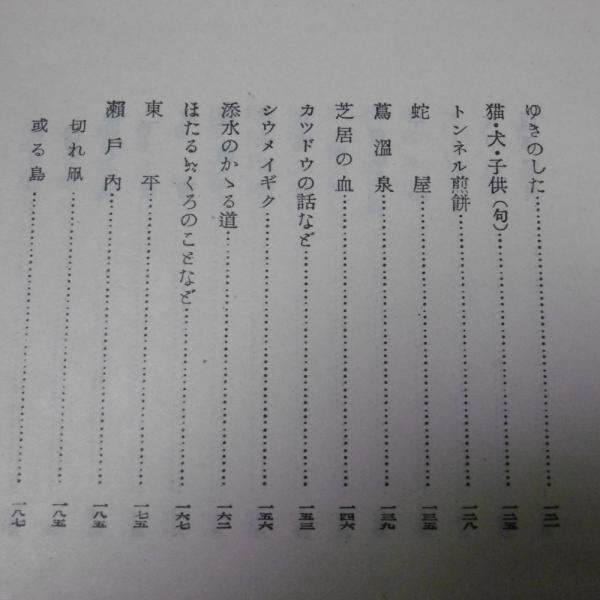 ゆきのした…………一二一
猫・犬・子供(句)…………一二五
トンネル煎餅…………一二八
蛇屋…………一三五
蔦溫泉…………一三九
芝居の血…………一四六
カツドウの話など…………一五三
シウメイギク…………一五六
添水のかゝる道…………一六二
ほたるぶくろのことなど…………一六七
東平…………一七五
瀨戶內…………一八五
切れ凧…………一八五
或る島…………一八七